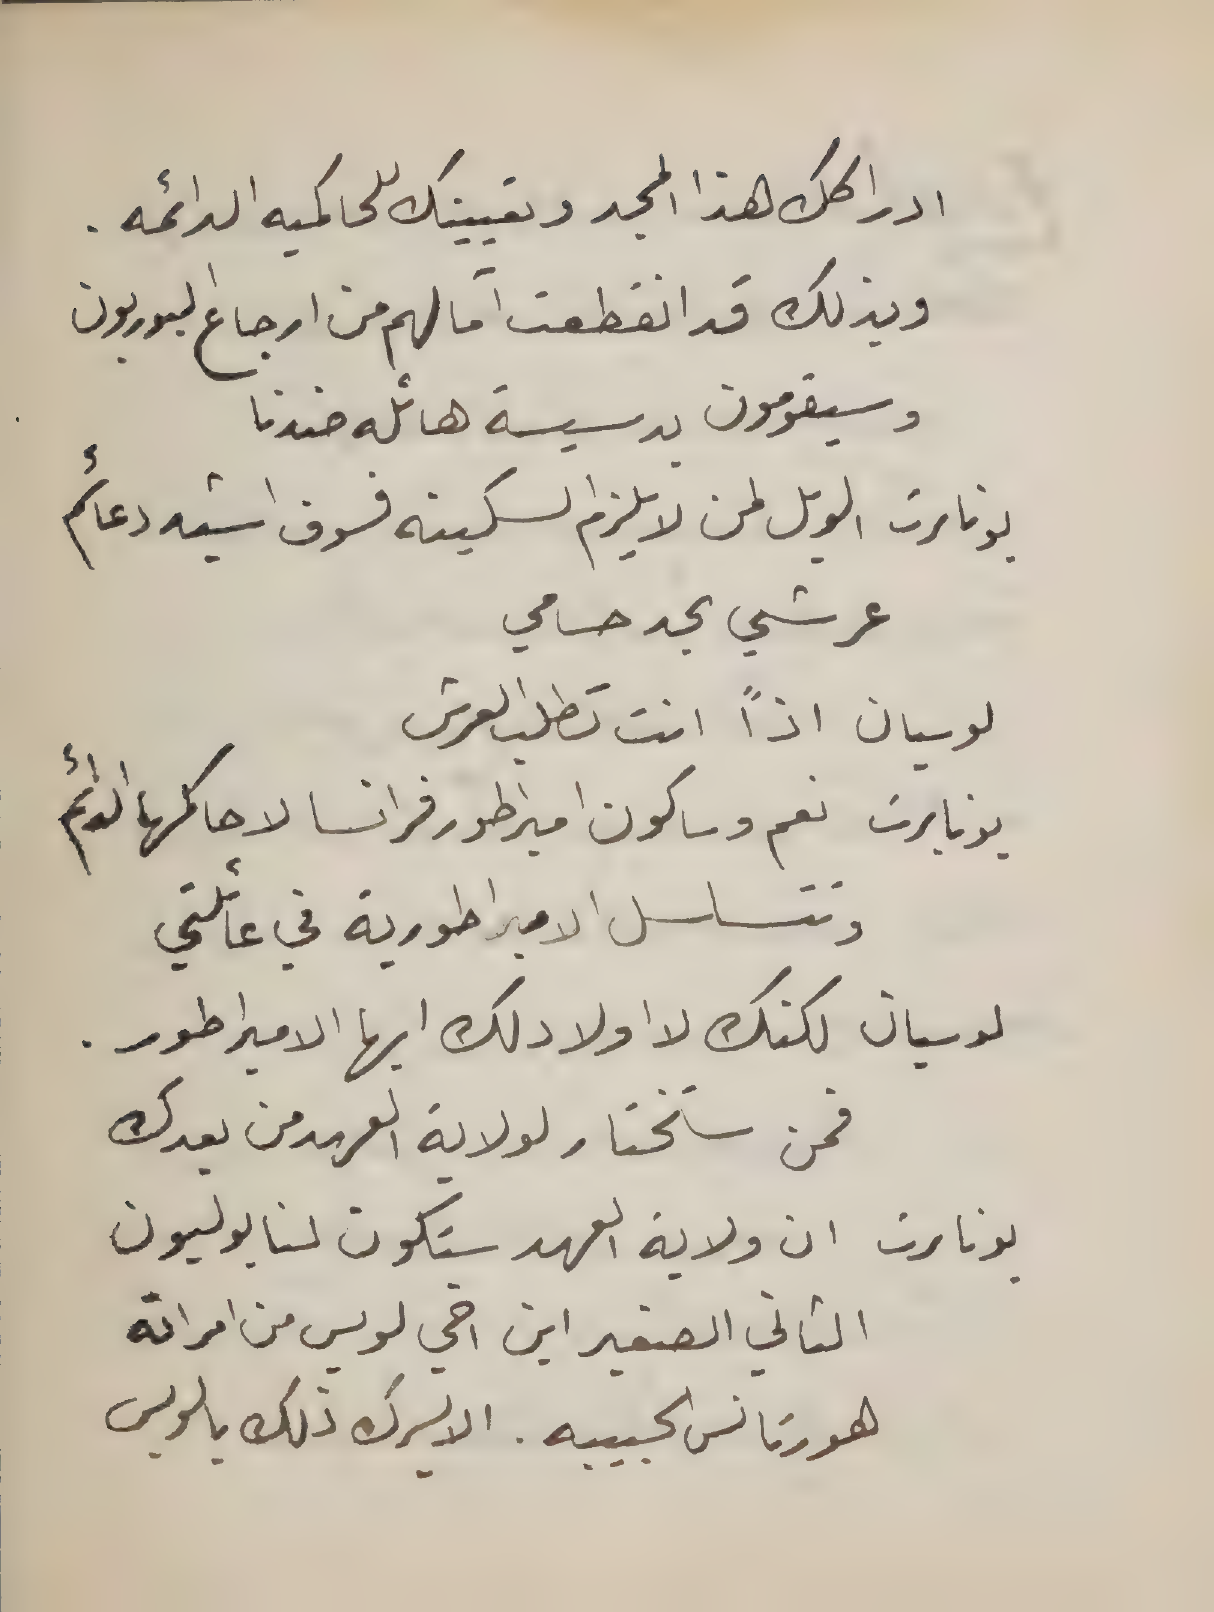 ادراكك لهذا المجد وتعيينك للحاكميه الدائمه .
وبذلك قد انقطعت آمالهم من ارجاع البوربون
وسيقومون بدسيسة هائله ضدنا
بونابرت الويل لمن لا يلزم السكينه فسوف اشيد دعائم
عرشي بحد حسامي
لوسيان اذاً انت تطلب العرش
بونابرت نعم وساكون امبراطور فرانسا لا حاكمها الدائم
وتتسلسل الامبراطورية في عائلتي
لوسيان لكنك لا اولاد لك ايها الامبراطور .
فمن ستختار لولاية العهد من بعدك
بونابرت ان ولاية العهد ستكون لنابوليون
الثاني الصغير ابن اخي لويس من امراته
هورتانس الحبيبه . الا يسرك ذلك يا لويس